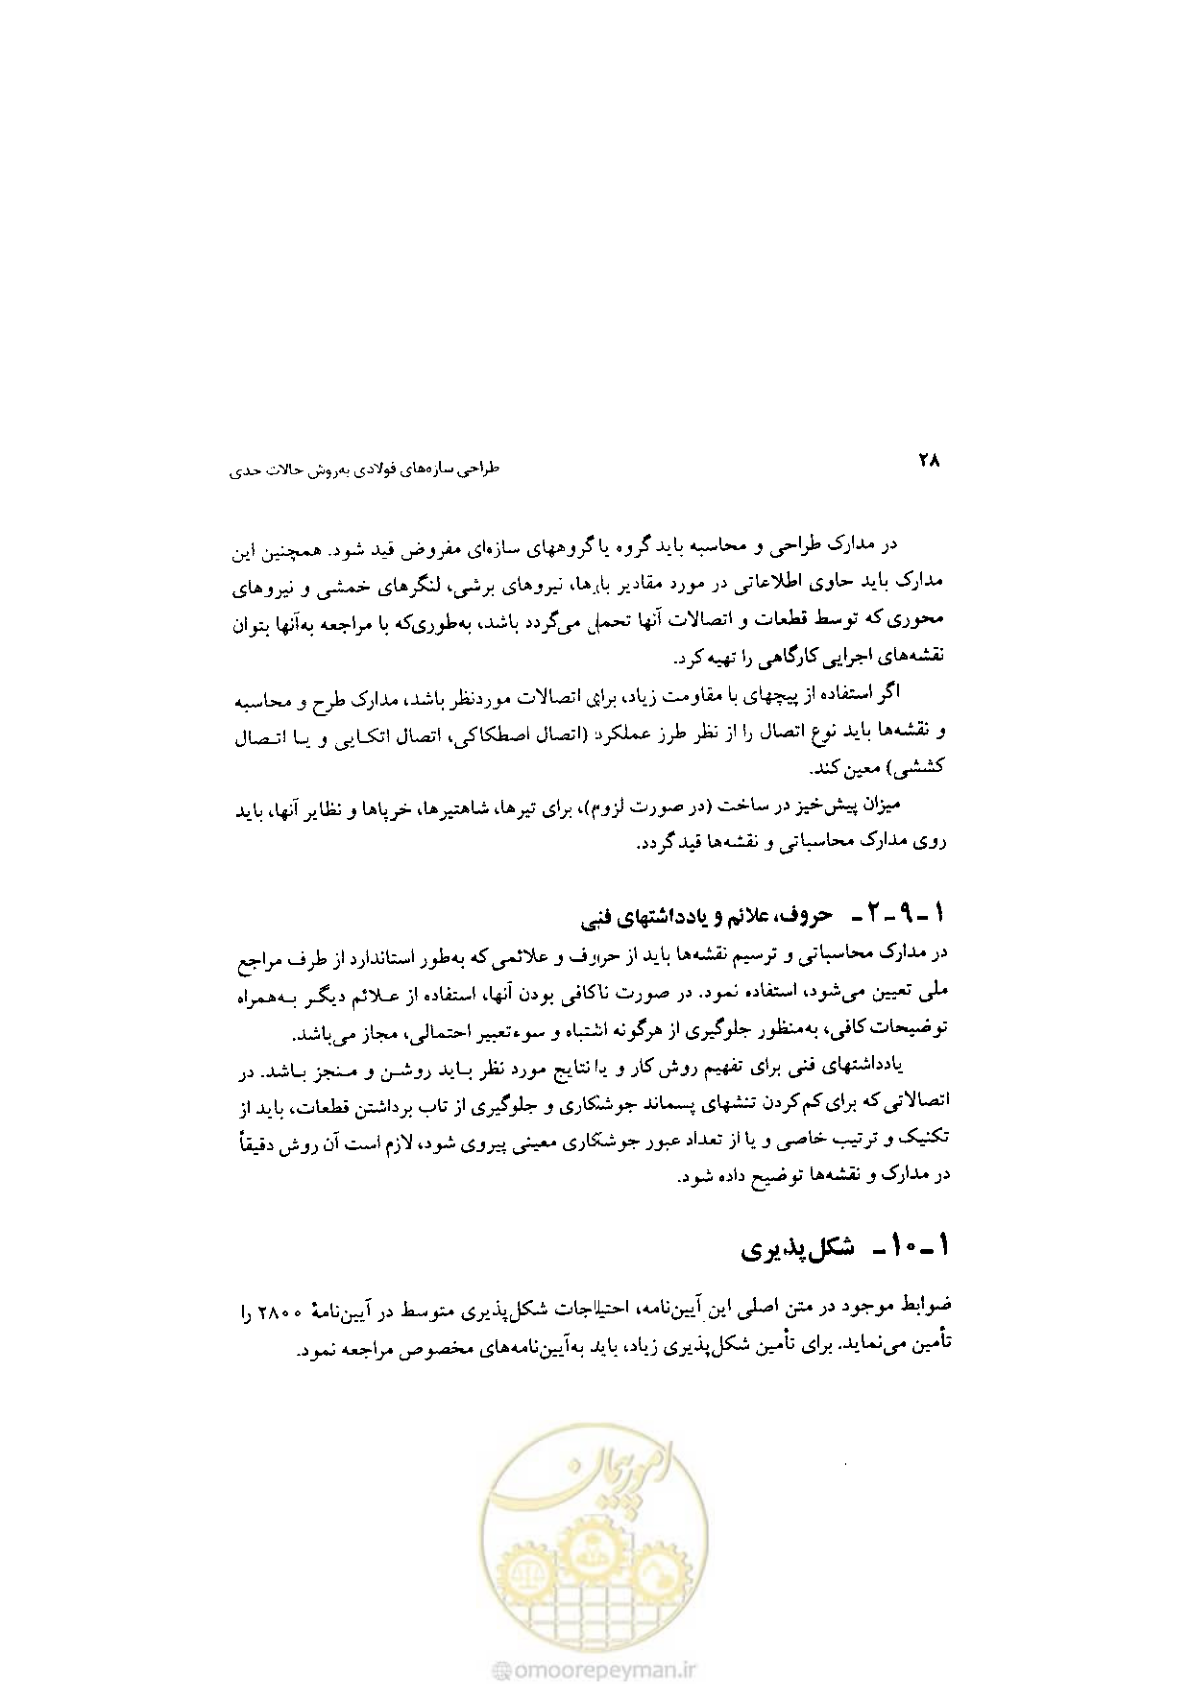 ۲۸
طراحی سازه‌های فولادی به‌روش حالات حدی
در مدارک طراحی و محاسبه باید گروه یا گروههای سازه‌ای مفروض قید شود. همچنین این
مدارک باید حاوی اطلاعاتی در مورد مقادیر بارها، نیروهای برشی، لنگرهای خمشی و نیروهای
محوری که توسط قطعات و اتصالات آنها تحمل می‌گردد باشد، به‌طوری‌که با مراجعه به‌آنها بتوان
نقشه‌های اجرایی کارگاهی را تهیه کرد.
اگر استفاده از پیچهای با مقاومت زیاد، برای اتصالات موردنظر باشد، مدارک طرح و محاسبه
و نقشه‌ها باید نوع اتصال را از نظر طرز عملکرد (اتصال اصطکاکی، اتصال اتکایی و یا اتصال
کششی) معین کند.
میزان پیش‌خیز در ساخت (در صورت لزوم)، برای تیرها، شاهتیرها، خرپاها و نظایر آنها، باید
روی مدارک محاسباتی و نقشه‌ها قید گردد.
۱-۹-۲- حروف، علائم و یادداشتهای فنی
در مدارک محاسباتی و ترسیم نقشه‌ها باید از حروف و علائمی که به‌طور استاندارد از طرف مراجع
ملی تعیین می‌شود، استفاده نمود. در صورت ناکافی بودن آنها، استفاده از علائم دیگر به‌همراه
توضیحات کافی، به‌منظور جلوگیری از هرگونه اشتباه و سوءتعبیر احتمالی، مجاز می‌باشد.
یادداشتهای فنی برای تفهیم روش کار و یا نتایج مورد نظر باید روشن و منجز باشد. در
اتصالاتی که برای کم‌کردن تنشهای پسماند جوشکاری و جلوگیری از تاب برداشتن قطعات، باید از
تکنیک و ترتیب خاصی و یا از تعداد عبور جوشکاری معینی پیروی شود، لازم است آن روش دقیقاً
در مدارک و نقشه‌ها توضیح داده شود.
۱-۱۰- شکل‌پذیری
ضوابط موجود در متن اصلی این آیین‌نامه، احتیاجات شکل‌پذیری متوسط در آیین‌نامهٔ ۲۸۰۰ را
تأمین می‌نماید. برای تأمین شکل‌پذیری زیاد، باید به‌آیین‌نامه‌های مخصوص مراجعه نمود.
امور پیمان
@omoorepeyman.ir